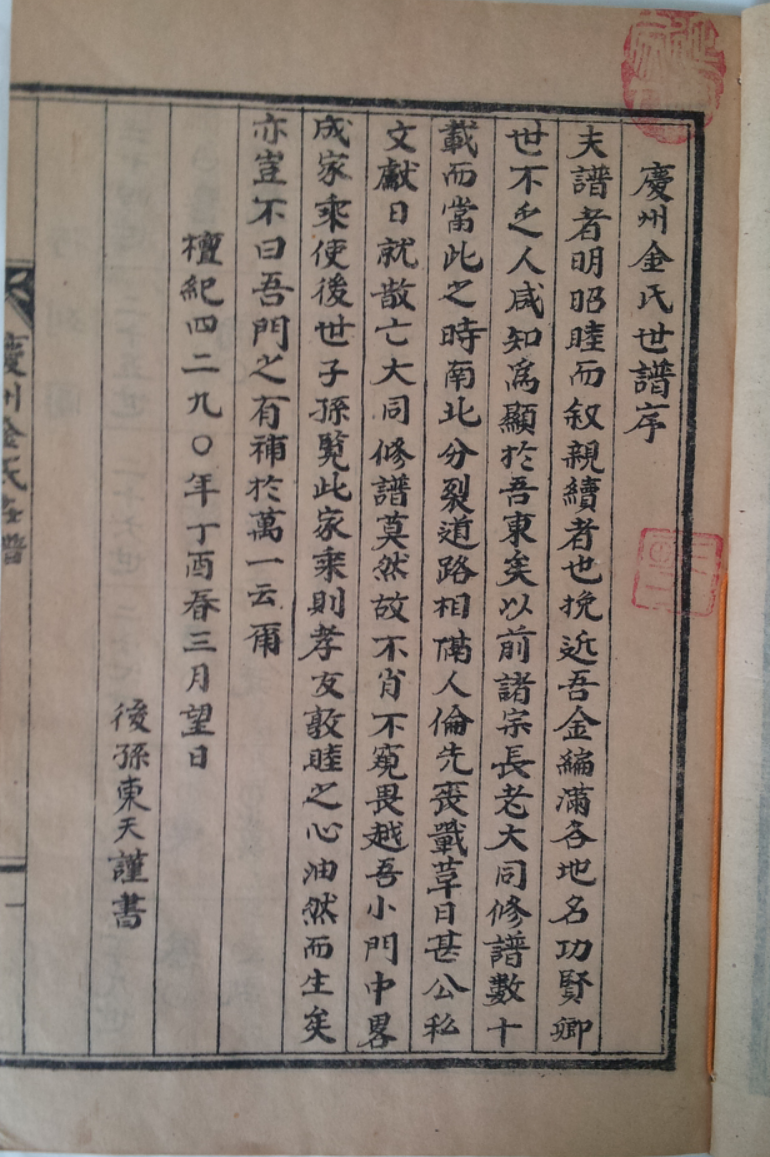 慶州金氏世譜序
夫譜者明昭睦而叙親續者也挽近吾金編滿各地名功賢卿
世不乏人咸知爲顯於吾東矣以前諸宗長老大同修譜數十
載而當此之時南北分裂道路相人倫先喪草日甚公私
文獻日就散亡大同修譜莫然故不肖不寬畏越吾小門中畧
成家乘使後世子孫覽此家乘則孝友敦睦之心油然而生矣
亦豈不曰吾門之有補於萬一云爾
檀紀四二九〇年丁酉春三月望日
後孫東天謹書
慶州金氏世譜